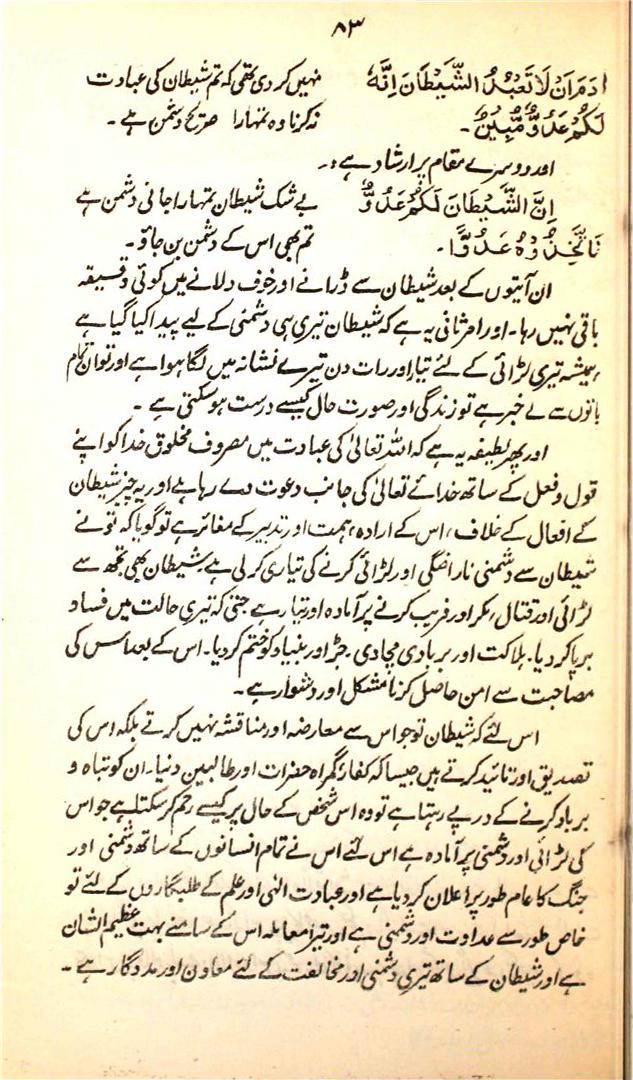 ۸۳
ادَمَ اَنْ لَا تَعْبُدُ الشَّيْطَانَ اِنَّهٗ نہیں کر دی تھی کہ تم شیطان کی عبادت
لَكُمْ عَدُوٌّ مُّبِيْنٌ۔ نہ کرنا وہ تمہارا صریح دشمن ہے۔
اور دوسرے مقام پر ارشاد ہے:۔
اِنَّ الشَّيْطَانَ لَكُمْ عَدُوٌّ بے شک شیطان تمہارا جانی دشمن ہے
فَاتَّخِذُوْهُ عَدُوًّا۔ تم بھی اس کے دشمن بن جاؤ۔
ان آیتوں کے بعد شیطان سے ڈرانے اور خوف دلانے میں کوئی دقیقہ
باقی نہیں رہا۔ اور امر ثانی یہ ہے کہ شیطان تیری ہی دشمنی کے لیے پیدا کیا گیا ہے
ہمیشہ تیری لڑائی کے لئے تیار اور رات دن تیرے نشانہ میں لگا ہوا ہے اور تو ان تمام
باتوں سے بے خبر ہے تو زندگی اور صورت حال کیسے درست ہو سکتی ہے۔
اور پھر لطیفہ یہ ہے کہ اللہ تعالیٰ کی عبادت میں مصروف مخلوق خدا کو اپنے
قول و فعل کے ساتھ خدائے تعالیٰ کی جانب دعوت دے رہا ہے اور یہ چیز شیطان
کے افعال کے خلاف، اس کے ارادہ، ہمت اور تدبیر کے مغائر ہے تو گویا کہ تو نے
شیطان سے دشمنی ناراضگی اور لڑائی کرنے کی تیاری کر لی ہے شیطان بھی تجھ سے
لڑائی اور قتال، مکر اور فریب کرنے پر آمادہ اور تیار ہے حتیٰ کہ تیری حالت میں فساد
برپا کر دیا۔ ہلاکت اور بربادی مچا دی۔ جڑ اور بنیاد کو ختم کر دیا۔ اس کے بعد اس کی
مصاحبت سے امن حاصل کرنا مشکل اور دشوار ہے۔
اس لئے کہ شیطان تو جو اس سے معارضہ اور مناقشہ نہیں کرتے بلکہ اس کی
تصدیق اور تائید کرتے ہیں جیسا کہ کفار، گمراہ حضرات اور طالبین دنیا۔ ان کو تباہ و
برباد کرنے کے درپے رہتا ہے تو وہ اس شخص کے حال پر کیسے رحم کر سکتا ہے جو اس
کی لڑائی اور دشمنی پر آمادہ ہے اس لئے اس نے تمام انسانوں کے ساتھ دشمنی اور
جنگ کا عام طور پر اعلان کر دیا ہے اور عبادت الٰہی اور علم کے طلبگاروں کے لئے تو
خاص طور سے عداوت اور دشمنی ہے اور تیرا معاملہ اس کے سامنے بہت عظیم الشان
ہے اور شیطان کے ساتھ تیری دشمنی اور مخالفت کے لئے معاون اور مددگار ہے۔